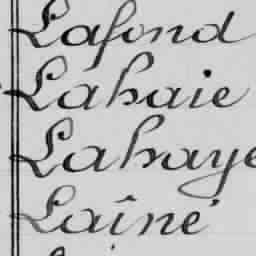 Lafond
Lahaie
Lahaye
Laîné